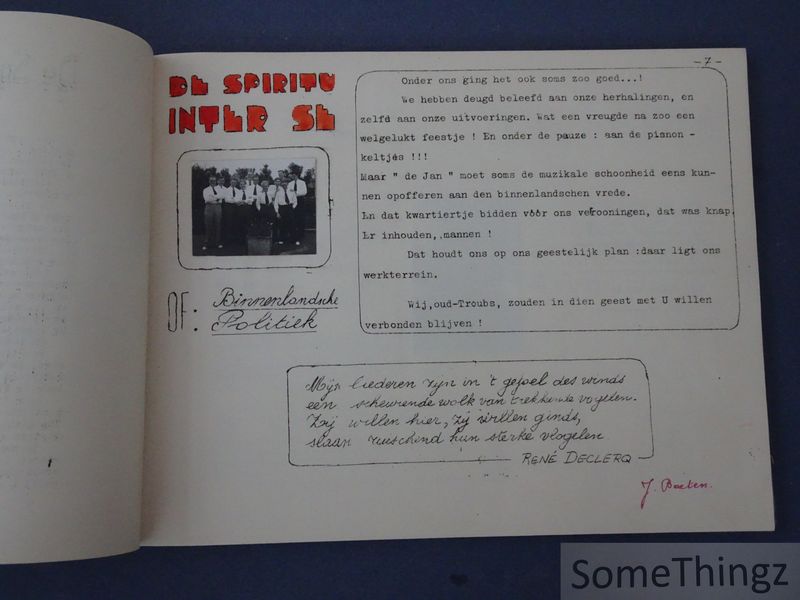 - 7 -
DE SPIRITU
INTER SE
OF: Binnenlandsche
Politiek
Onder ons ging het ook soms zoo goed...!
We hebben deugd beleefd aan onze herhalingen, en
zelfd aan onze uitvoeringen. Wat een vreugde na zoo een
welgelukt feestje ! En onder de pauze : aan de pisnon -
keltjes !!!
Maar " de Jan " moet soms de muzikale schoonheid eens kun-
nen opofferen aan den binnenlandschen vrede.
En dat kwartiertje bidden vóór ons vertooningen, dat was knap.
Er inhouden, mannen !
Dat houdt ons op ons geestelijk plan :daar ligt ons
werkterrein.
Wij,oud-Troubs, zouden in dien geest met U willen
verbonden blijven !
Mijn liederen zijn in 't gejoel des winds
een scheurende wolk van trekkende vogelen.
Zij willen hier, zij willen ginds,
slaan ruischend hun sterke vlogelen
RENÉ DECLERQ
J. Baeten.
SomeThingz